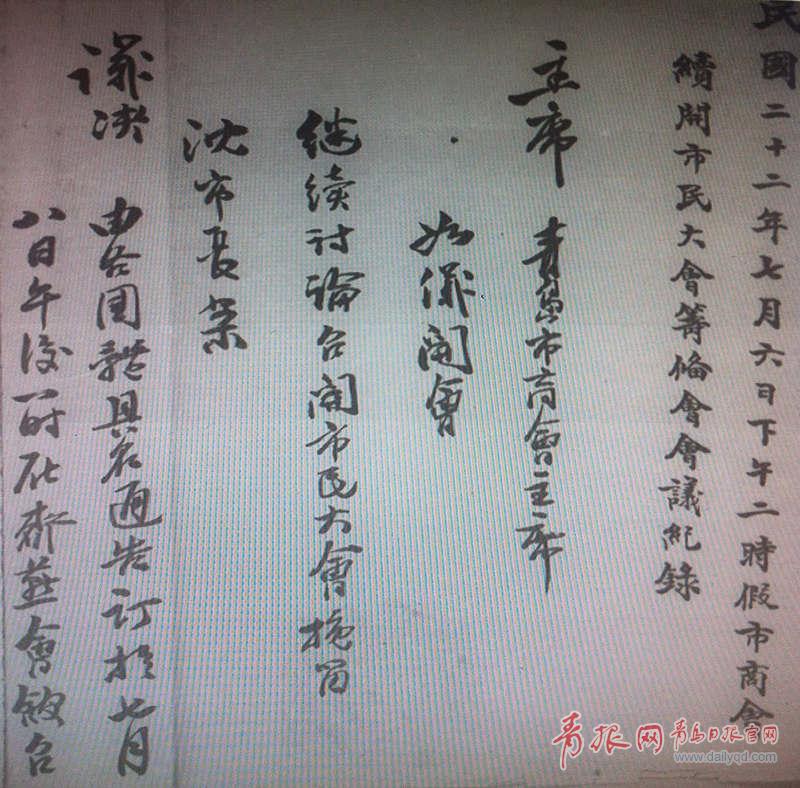 民國二十二年七月六日下午二時假市商會
續開市民大會筹俻會會議紀錄
主席 青島市商會主席
如儀開會
继续讨論召開市民大會挽留
沈市長案
議决 由各团體具名通告订於七月
八日午后一时在齐燕會馆召
青报网 青岛日报官网
www.dailyqd.com